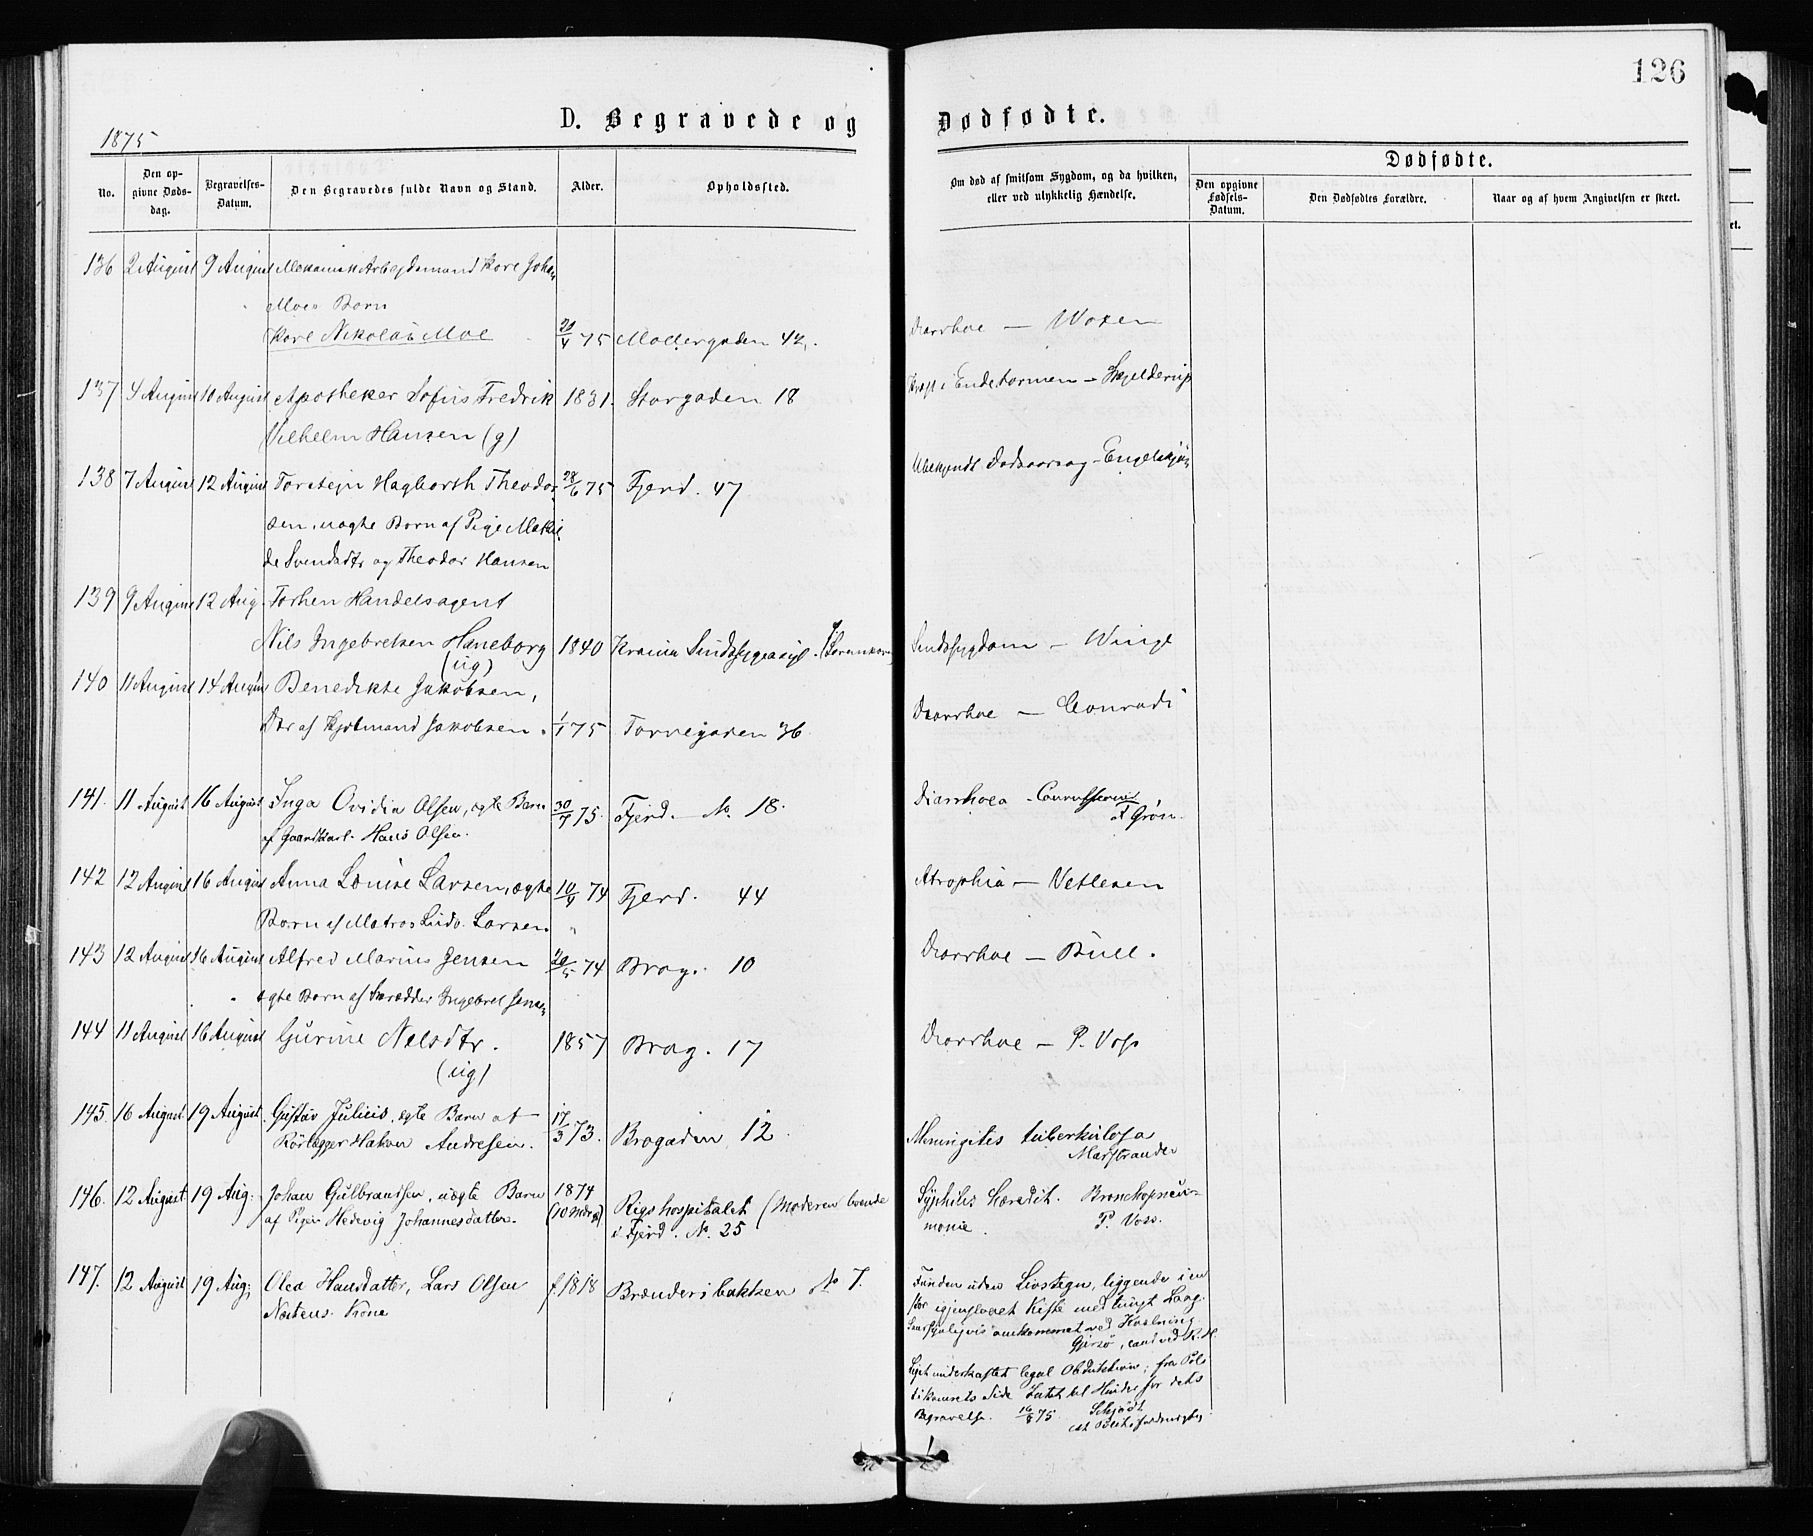 126
D. Begravede og Dødfødte.
1875
No.
Den op-
givne Døds-
dag.
Begravelses-
Datum.
Den Begravedes fulde Navn og Stand.
Alder.
Opholdssted.
Om død af smitsom Sygdom, og da hvilken,
eller ved ulykkelig Hændelse.
Dødfødte.
Den opgivne
Fødsels-
Datum.
Den Dødfødtes Forældre.
Naar og af hvem Angivelsen er skeet.
136 2 August 9 August Mekanisk Arbejdsmand Karl Johan
Moes Barn
Karl Nikolai Moe 75 Møllergaden 42. Diarrhoe — Woxen
137 4 August 10 August Apotheker Sofus Fredrik 1831. Storgaden 18 Kræft i Endetarmen —
Vilhelm Hansen (g)
138 7 August 12 August Torstejn Hagbarth Theodor 28/6 75 Fjerd. 47 Ubekjendt Dødsaarsag —
sen, uægte Barn af Pige Mathil
de Svendsdtr og Theodor Hansen
139 9 August 12 Aug. Forhen Handelsagent
Nils Ingebretsen Haneborg 1840 Krania Sindssygeasyl. Sindssygdom — Winge
(ug)
140 11 August 14 August Benedikte Jakobsen,
Dtr af Jakobsen. 1/1 75 Torvegaden 36 Diarrhoe — Conradi
141. 11 August 16 August Inga Ovidia Olsen, ægte Barn 75. Fjerd. No. 18. Diarrhoea —
af Gaardkarl Hans Olsen. Grøn.
142 12 August 16 August Anna Louise Larsen, ægte 10/9 74 Fjerd. 44 Atrophia — Vetlesen
Barn af Matros Ludv. Larsen
143 12 August 16 August Alfred Marius Jensen 20/5 74 Brog. 10 Diarrhoe — Bull.
ægte Barn af Skrædder Ingebret Jensen
144 11 August 16 August Gurine Nelsdtr. 1857 Brog. 17 Diarrhoe — P. Voss
(ug)
145. 16 August 19 August. Gustav Julius, ægte Barn af 17/3 73. Brogaden 12. Meningitis tuberkulosa
Rørlægger Hakon Andresen. Marstrander
146. 12 August 19 Aug. Johan Gulbrandsen, uægte Barn 1874 Rigshospitalet (Moderen boende Syphilis heredit. Bronchopneu-
af Pigen Hedevig Johannesdatter. (10 Mdr) i Fjerd. No. 25 monie. P. Voss.
147. 12 August 19 Aug. Olea Hansdatter, Lars Olsen f. 1818 Brænderibakken No 7. Funden uden Livstegn, liggende i en
Kone
stor Kiste med tungt Laag.
omkommet ved Kvælning
Liget underkastet legal Obduktion; fra Poli
tikamrets Side Intet til Hinder for dets
Begravelse. 16/8 75. Schjødt